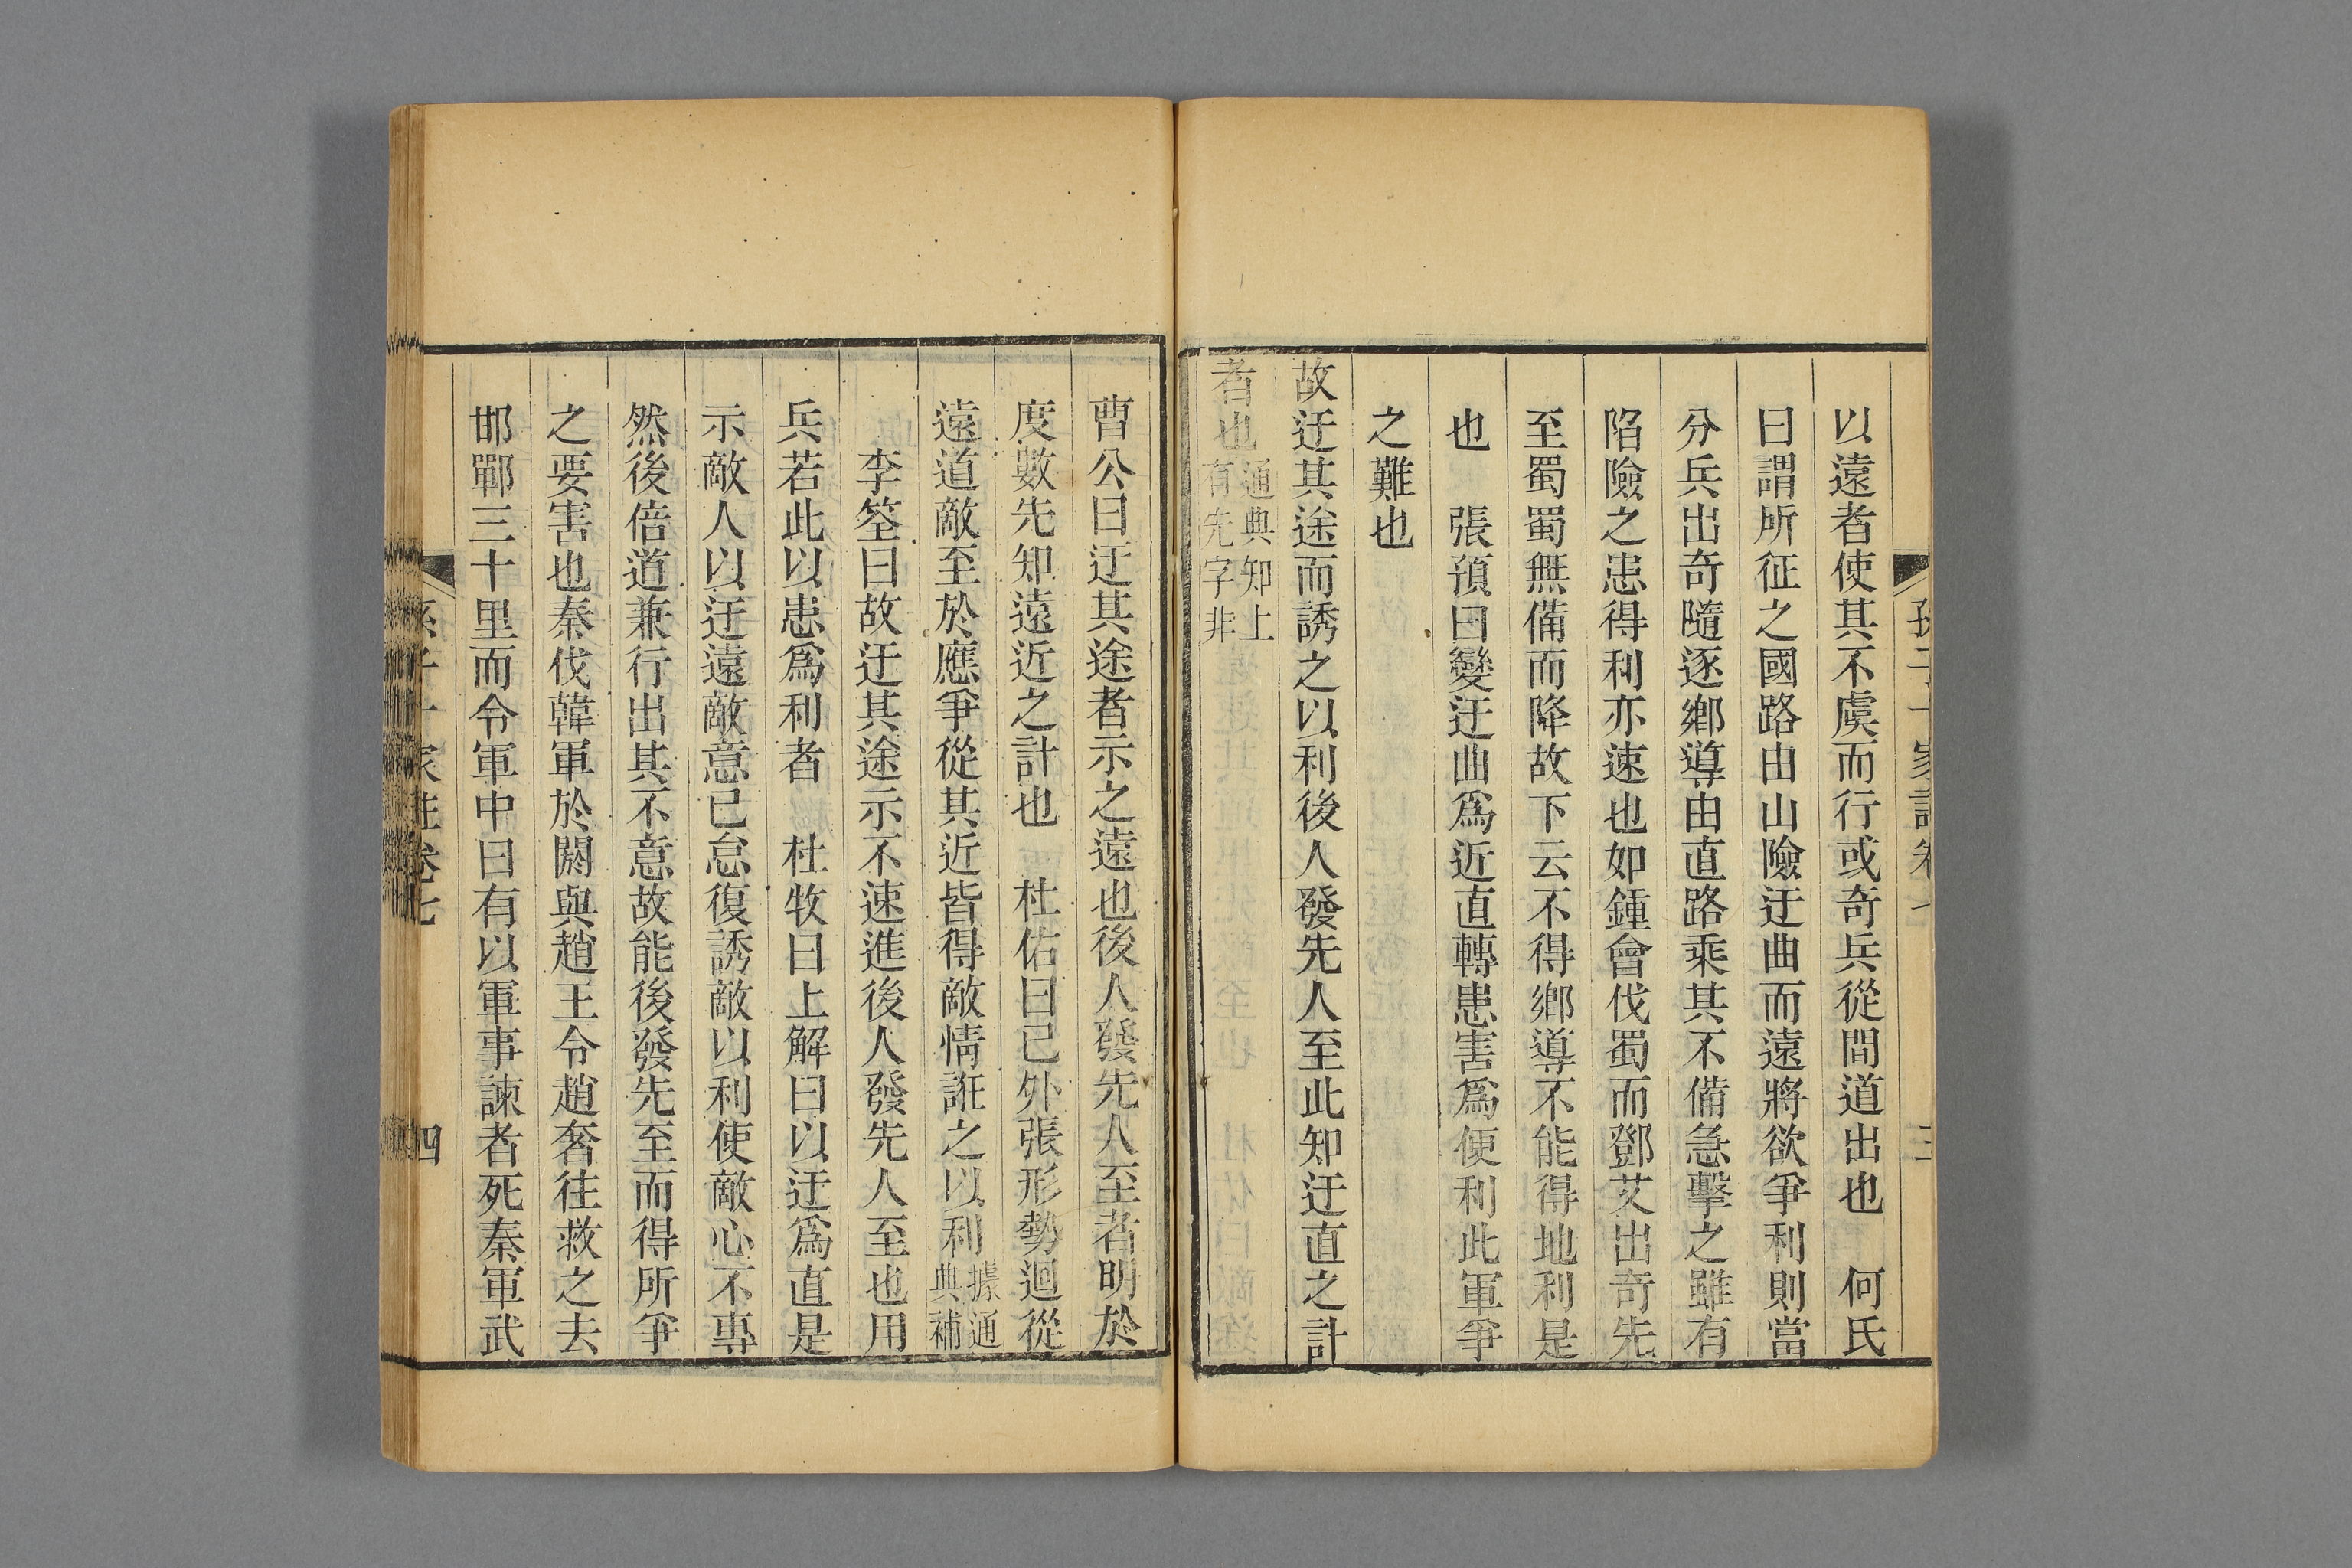 以遠者使其不虞而行或奇兵從間道出也　何氏
曰謂所征之國路由山險迂曲而遠將欲爭利則當
分兵出奇隨逐鄕導由直路乘其不備急擊之雖有
陷險之患得利亦速也如鍾會伐蜀而鄧艾出奇先
至蜀蜀無備而降故下云不得鄕導不能得地利是
也　張預曰變迂曲爲近直轉患害爲便利此軍爭
之難也
故迂其途而誘之以利後人發先人至此知迂直之計
者也通典知上有先字非
曹公曰迂其途者示之遠也後人發先人至者明於
度數先知遠近之計也　杜佑曰己外張形勢迴從
遠道敵至於應爭從其近皆得敵情誑之以利據通典補
李筌曰故迂其途示不速進後人發先人至也用
兵若此以患爲利者　杜牧曰上解曰以迂爲直是
示敵人以迂遠敵意已怠復誘敵以利使敵心不專
然後倍道兼行出其不意故能後發先至而得所爭
之要害也秦伐韓軍於閼與趙王令趙奢往救之去
邯鄲三十里而令軍中曰有以軍事諫者死秦軍武
孫子十家注卷七
四